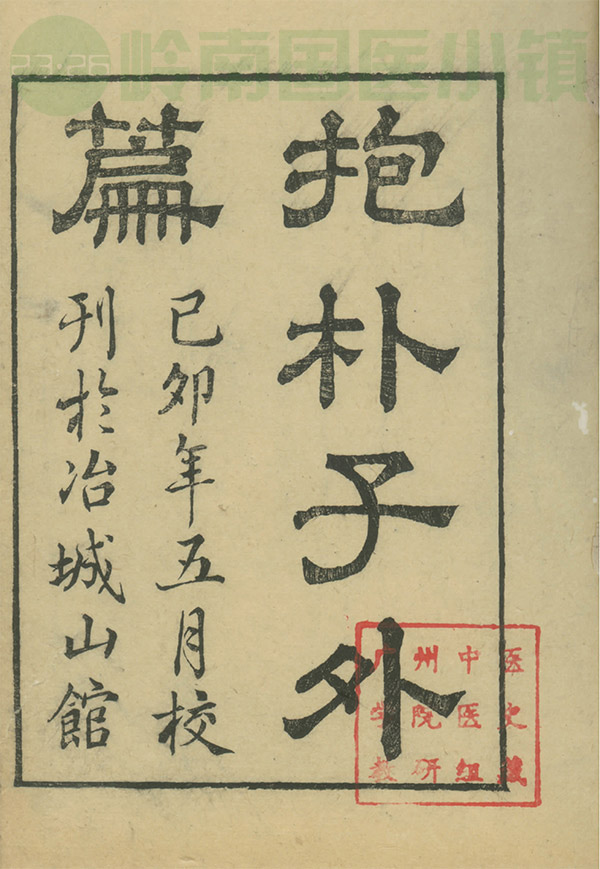 岭南国医小镇
抱朴子外
篇
己卯年五月校
刊於冶城山館
广州中医
学院医史
教研组藏